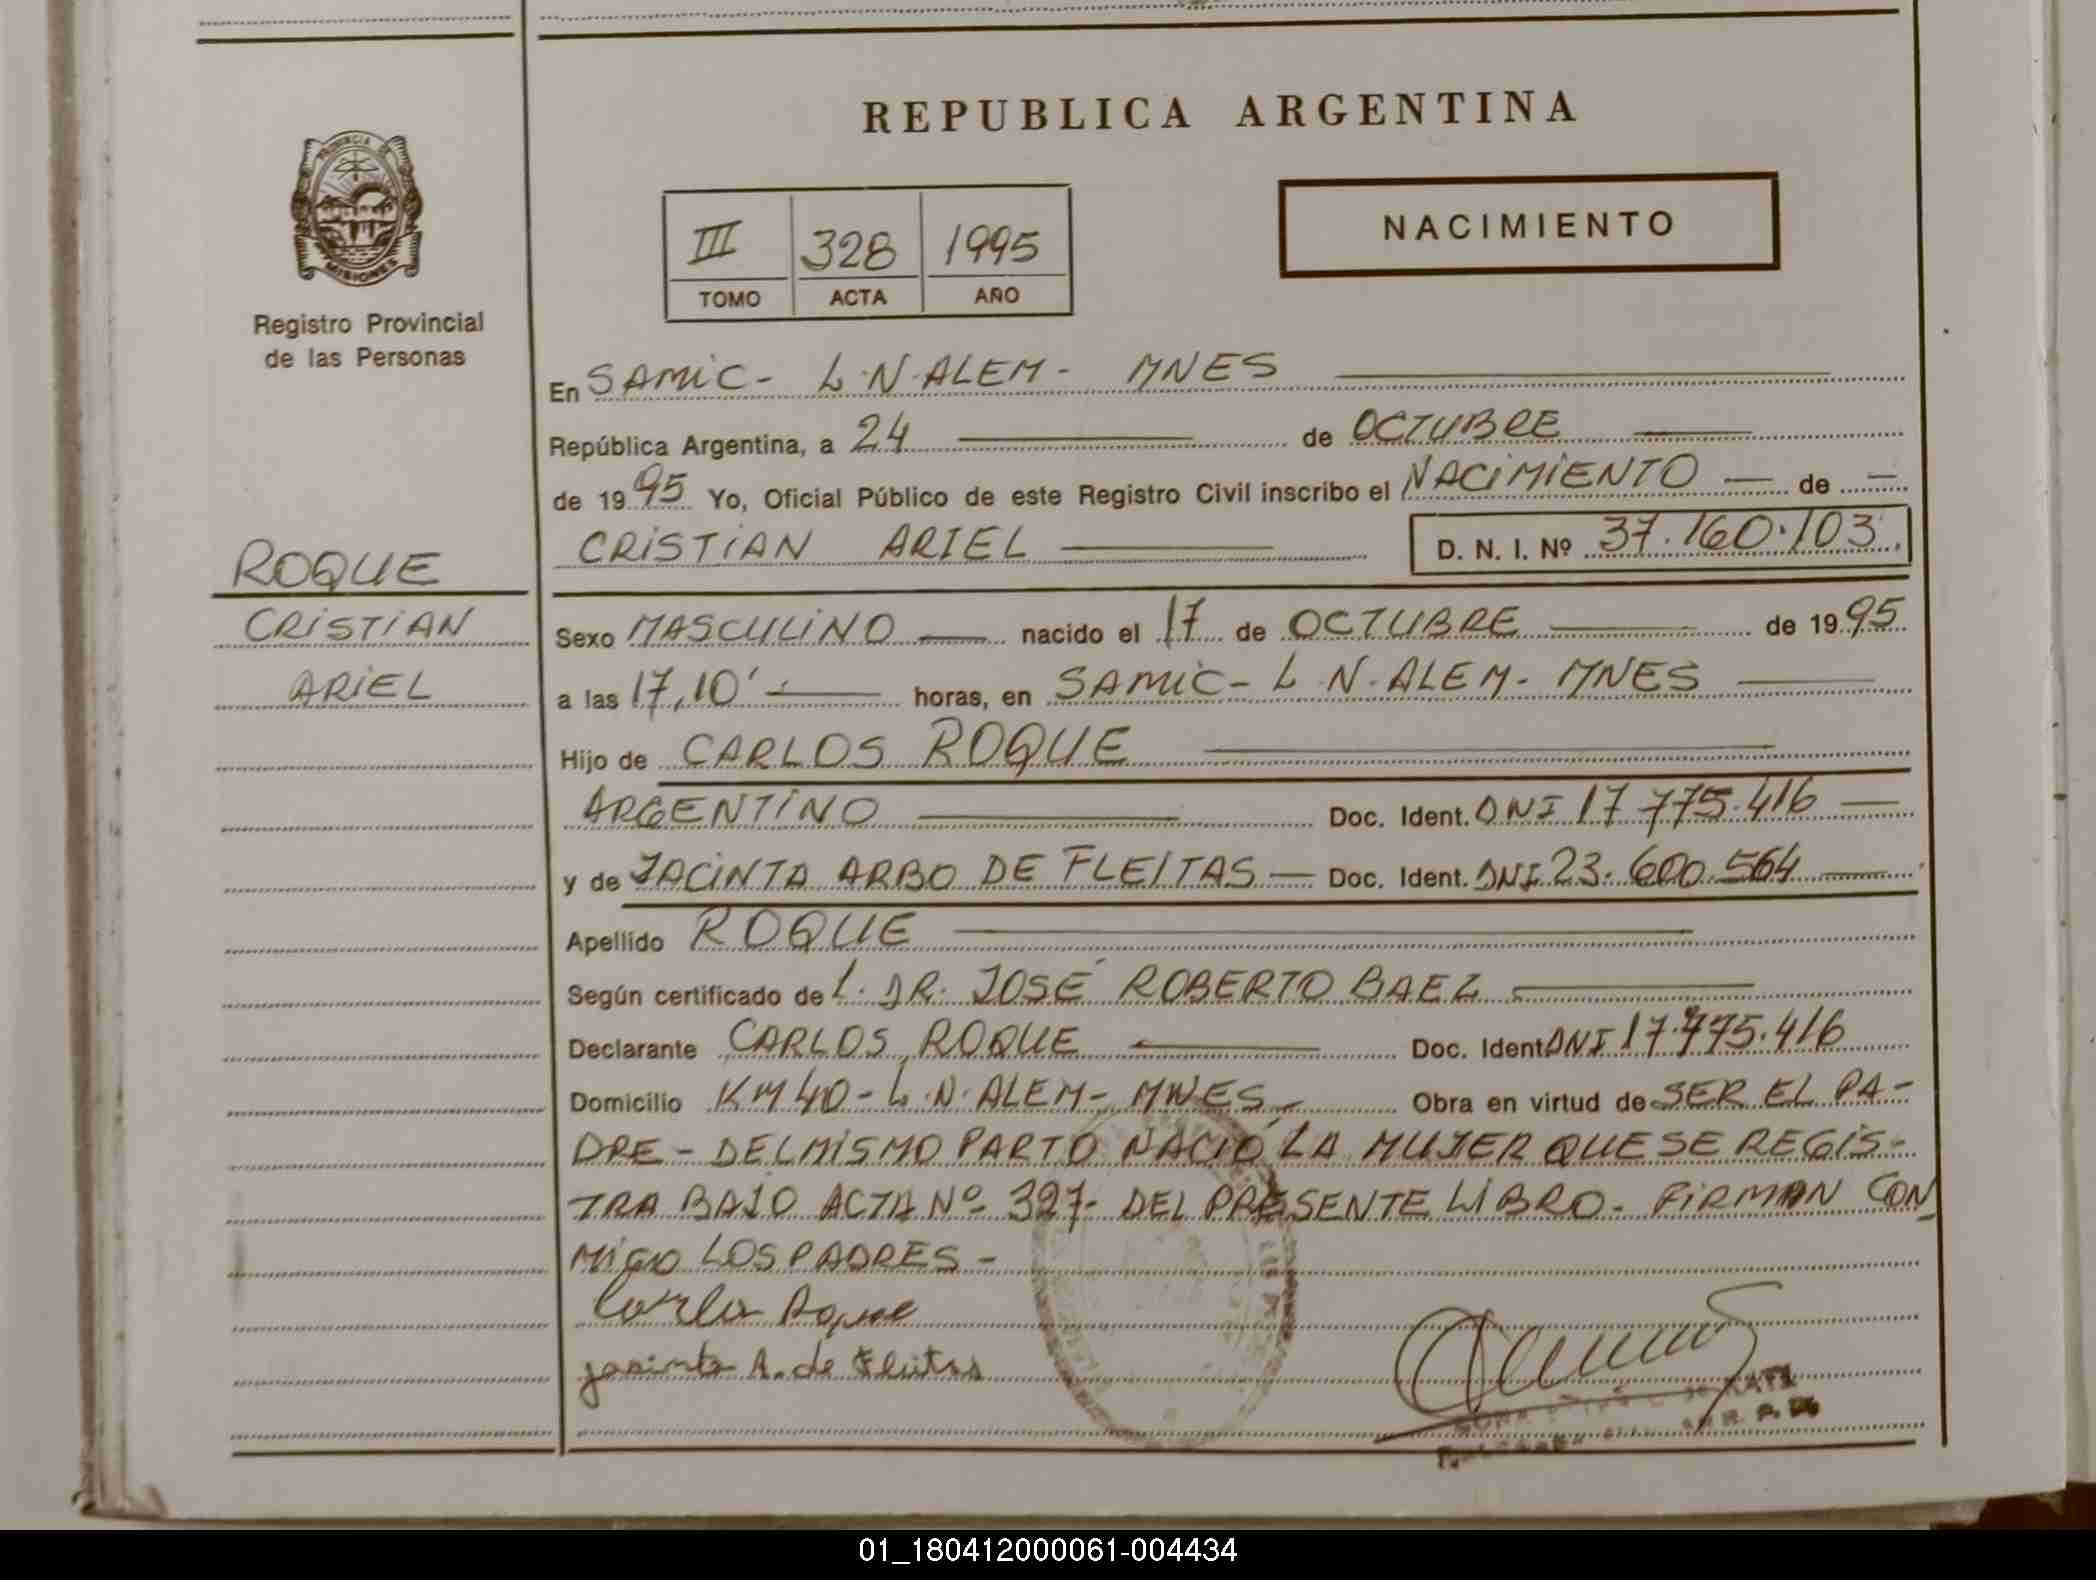 REPUBLICA ARGENTINA
PROVINCIA DE
MISIONES
Registro Provincial
de las Personas
III 328 1995
TOMO ACTA AÑO
NACIMIENTO
En SAMIC- L.N.ALEM- MNES
República Argentina, a 24 de OCTUBRE
de 1995 Yo, Oficial Público de este Registro Civil inscribo el NACIMIENTO de
CRISTIAN ARIEL D. N. I. Nº 37.160.103
ROQUE
CRISTIAN
ARIEL
Sexo MASCULINO nacido el 17 de OCTUBRE de 1995
a las 17,10' horas, en SAMIC- L N. ALEM- MNES
Hijo de CARLOS ROQUE
ARGENTINO Doc. Ident. DNI 17 775.416
y de JACINTA ARBO DE FLEITAS Doc. Ident. DNI 23.600.564
Apellido ROQUE
Según certificado de L. DR. JOSÉ ROBERTO BAEZ
Declarante CARLOS ROQUE Doc. Ident DNI 17.775.416
Domicilio KM 40- L.N. ALEM- MNES- Obra en virtud de SER EL PA-
DRE- DEL MISMO PARTO NACIÓ LA MUJER QUE SE REGIS-
TRA BAJO ACTA Nº 327- DEL PRESENTE LIBRO- FIRMAN CON
MIGO LOS PADRES-
Carlos Roque
Jacinta A. de Fleitas
01_180412000061-004434